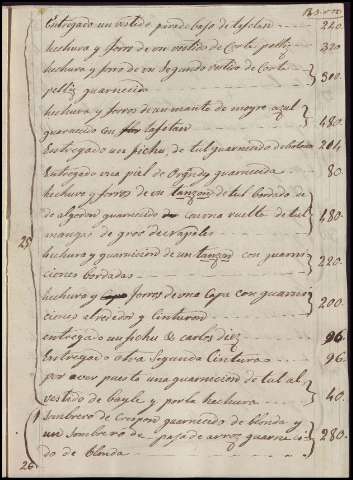 Entregado un vestido para debajo de tafetan 220
hechura y forro de un vestido de Corte pelliz 320
hechura y forro de un Segundo vestido de Corte
pelliz guarnecido 300
hechura y forros de un manto de moyre azul
guarnecido con tafetan 480
Entregado un fichu, de tul guarnecido de 204
Entregado una piel de guarnecida 80
hechura y forros de un tanzon de tul bordado de
de algodon guarnecido con una vuelta de tul 480
mangas de gros de napoles
25
hechura y guarnicion de un tanzon con guarni
ciones bordadas 220
hechura y forros de una Capa con guarni
ciones alrededor y Cinturon 200
entregado un fichu de carlos diez 96
Entregado otra Segunda Cinturas 96
por aver puesto una guarnicion de tul al
vestido de bayle y por la hechura 40
sombrero de Crespon guarnecido de blonda y
un sombrero de paja de arroz guarneci
do de blonda 280
26